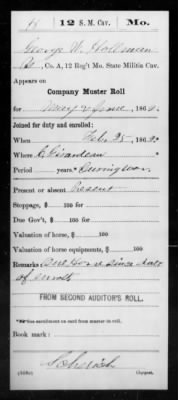 12 S. M. Cav. Mo.
George W.
Co. A, 12 Reg't Mo. State Militia Cav.
Appears on
Company Muster Roll
for May & June, 1862.
Joined for duty and enrolled:
When Feb. 25, 1862.
Where C. Girardeau
Period years. During war.
Present or absent Present
Stoppage, $ 100 for
Due Gov't, $ 100 for
Valuation of horse, $ 100
Valuation of horse equipments, $ 100
Remarks since date
of enrolt
FROM SECOND AUDITOR'S ROLL.
*See enrollment on card from muster-in roll.
Book mark:
Copyist.